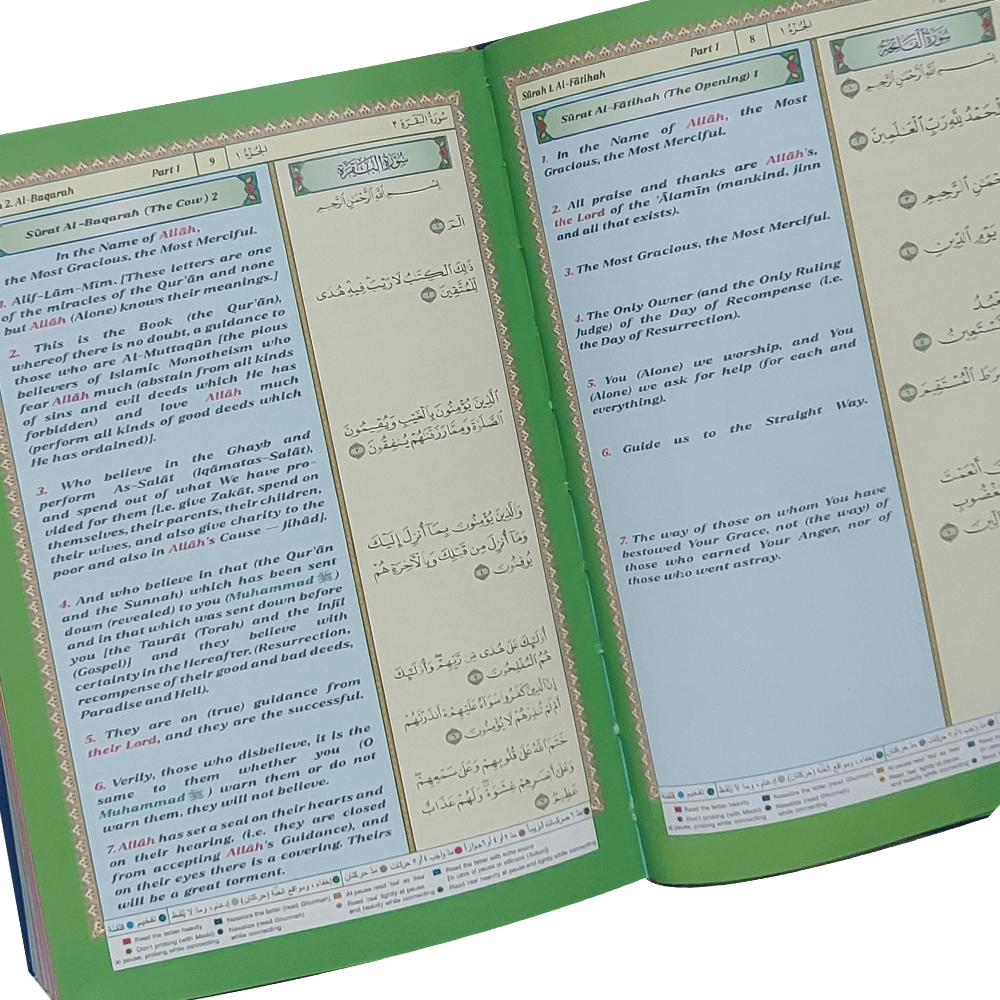 Sûrah 1. Al-Fâtihah
Part 1
8
الجزء ١
Sûrat Al-Fâtihah (The Opening) 1
1. In the Name of Allâh, the Most
Gracious, the Most Merciful.
2. All praise and thanks are Allâh's,
the Lord of the 'Âlamîn (mankind, jinn
and all that exists).
3. The Most Gracious, the Most Merciful.
4. The Only Owner (and the Only Ruling
Judge) of the Day of Recompense (i.e.
the Day of Resurrection).
5. You (Alone) we worship, and You
(Alone) we ask for help (for each and
everything).
6. Guide us to the Straight Way.
7. The way of those on whom You have
bestowed Your Grace, not (the way) of
those who earned Your Anger, nor of
those who went astray.
سُورَةُ الْفَاتِحَةِ
بِسْمِ اللَّهِ الرَّحْمَٰنِ الرَّحِيمِ ١
رَبِّ الْعَالَمِينَ ٢
الرَّحِيمِ ٣
يَوْمِ الدِّينِ ٤
٥
الْمُسْتَقِيمَ ٦
أَنْعَمْتَ
٧
Read the letter heavily
Don't prolong (with Madd)
at pause, prolong while connecting
Nasalize the letter (read Ghunnah)
Nasalize (read Ghunnah)
while connecting
2. Al-Baqarah
Part 1
9
الجزء ١
سُورَةُ الْبَقَرَة ٢
Sûrat Al-Baqarah (The Cow) 2
In the Name of Allâh,
the Most Gracious, the Most Merciful.
1. Alif-Lâm-Mîm. [These letters are one
of the miracles of the Qur'ân and none
but Allâh (Alone) knows their meanings.]
2. This is the Book (the Qur'ân),
whereof there is no doubt, a guidance to
those who are Al-Muttaqûn [the pious
believers of Islamic Monotheism who
fear Allâh much (abstain from all kinds
of sins and evil deeds which He has
forbidden) and love Allâh much
(perform all kinds of good deeds which
He has ordained)].
3. Who believe in the Ghayb and
perform As-Salât (Iqâmatas-Salât),
and spend out of what We have pro-
vided for them [i.e. give Zakât, spend on
themselves, their parents, their children,
their wives, and also give charity to the
poor and also in Allâh's Cause — Jihâd].
4. And who believe in that (the Qur'ân
and the Sunnah) which has been sent
down (revealed) to you (Muhammad ﷺ)
and in that which was sent down before
you [the Taurât (Torah) and the Injîl
(Gospel)] and they believe with
certainty in the Hereafter. (Resurrection,
recompense of their good and bad deeds,
Paradise and Hell).
5. They are on (true) guidance from
their Lord, and they are the successful.
6. Verily, those who disbelieve, it is the
same to them whether you (O
Muhammad ﷺ) warn them or do not
warn them, they will not believe.
7. Allâh has set a seal on their hearts and
on their hearing, (i.e. they are closed
from accepting Allâh's Guidance), and
on their eyes there is a covering. Theirs
will be a great torment.
سُورَةُ الْبَقَرَةِ
بِسْمِ اللَّهِ الرَّحْمَٰنِ الرَّحِيمِ
الٓمٓ ١
ذَٰلِكَ الْكِتَٰبُ لَا رَيْبَ فِيهِ هُدًى
لِّلْمُتَّقِينَ ٢
الَّذِينَ يُؤْمِنُونَ بِالْغَيْبِ وَيُقِيمُونَ
الصَّلَوٰةَ وَمِمَّا رَزَقْنَٰهُمْ يُنفِقُونَ ٣
وَالَّذِينَ يُؤْمِنُونَ بِمَآ أُنزِلَ إِلَيْكَ
وَمَآ أُنزِلَ مِن قَبْلِكَ وَبِالْءَاخِرَةِ هُمْ
يُوقِنُونَ ٤
أُو۟لَٰٓئِكَ عَلَىٰ هُدًى مِّن رَّبِّهِمْ وَأُو۟لَٰٓئِكَ
هُمُ الْمُفْلِحُونَ ٥
إِنَّ الَّذِينَ كَفَرُوا سَوَآءٌ عَلَيْهِمْ ءَأَنذَرْتَهُمْ
أَمْ لَمْ تُنذِرْهُمْ لَا يُؤْمِنُونَ ٦
خَتَمَ اللَّهُ عَلَىٰ قُلُوبِهِمْ وَعَلَىٰ سَمْعِهِمْ
وَعَلَىٰٓ أَبْصَٰرِهِمْ غِشَٰوَةٌ وَلَهُمْ عَذَابٌ
عَظِيمٌ ٧
Read the letter heavily
Don't prolong (with Madd)
at pause, prolong while connecting
Nasalize the letter (read Ghunnah)
Nasalize (read Ghunnah)
while connecting
Read the letter with echo sound